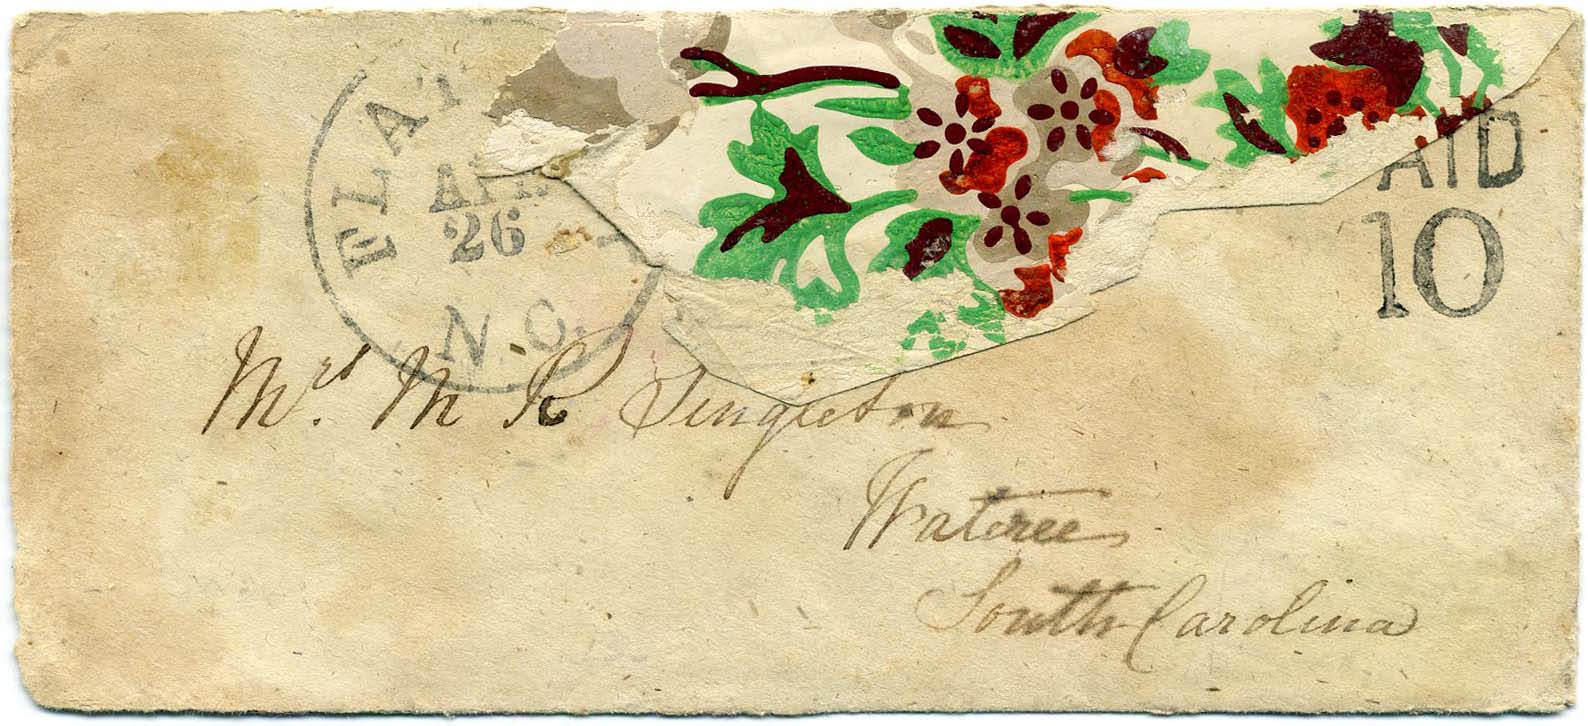 FLAT
APR
26
N.C.
AID
10
Mrs. M R Singleton
Wateree
South Carolina